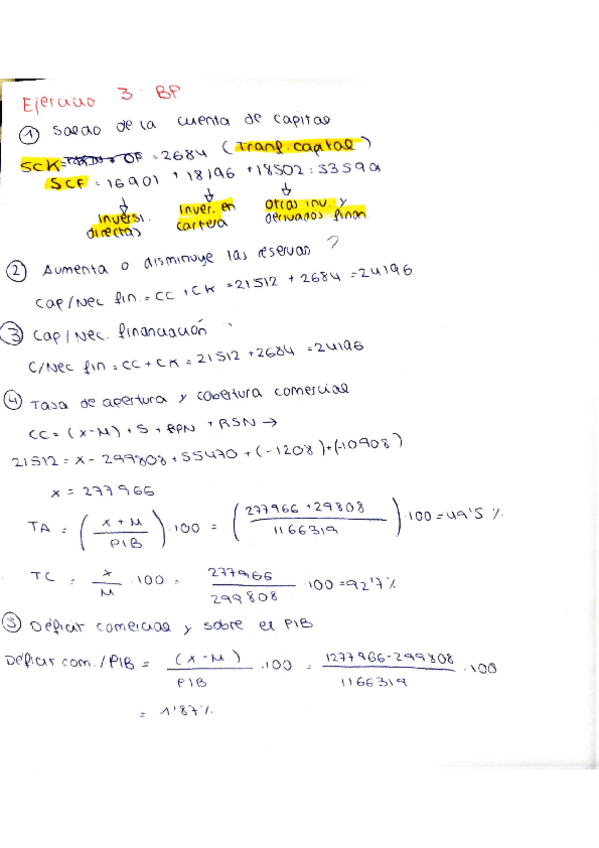 Ejercicio 3: BP
① Saldo de la cuenta de capital
SCK = 2684 (Transf. capital)
SCF = 16901 + 18196 + 18502 = 53599
Inversi. directas
Inver. en cartera
otras inv. y derivados finan.
② Aumenta o disminuye las reservas?
Cap/Nec fin. = CC + CK = 21512 + 2684 = 24196
③ Cap/Nec. financiación
C/Nec fin = CC + CK = 21512 + 2684 = 24196
④ Tasa de apertura y cobertura comercial
CC = (X-M) + S + RPN + RSN →
21512 = X - 299808 + 55470 + (-1208) + (-10908)
X = 277966
TA = (X + M / PIB) · 100 = (277966 + 29808 / 1166319) · 100 = 49'5 %
TC = X / M · 100 = 277966 / 299808 · 100 = 92'7 %
⑤ Déficit comercial y sobre el PIB
Déficit com. / PIB = (X - M) / PIB · 100 = 1277966 - 299808 / 1166319 · 100
= 1'87 %